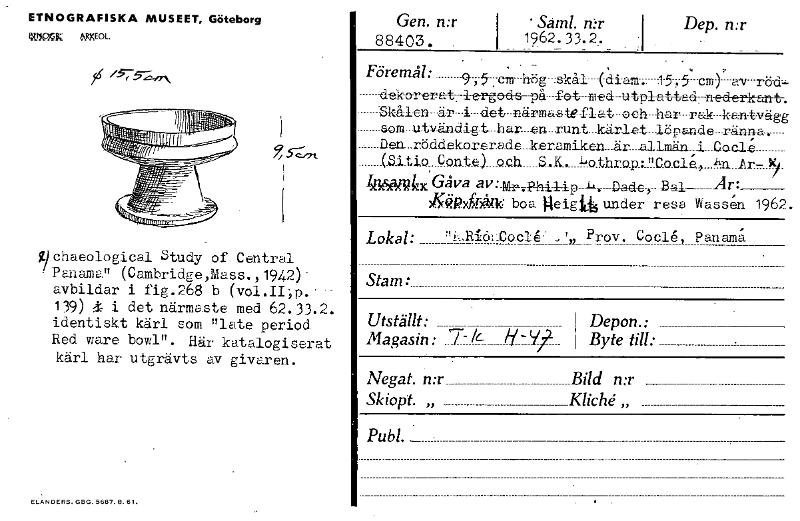 ETNOGRAFISKA MUSEET, Göteborg
ARKEOL.
ø 15,5cm
9,5cm
x/ chaeological Study of Central
Panama" (Cambridge,Mass.,1942)
avbildar i fig.268 b (vol.II,p.
139) i det närmaste med 62.33.2.
identiskt kärl som "late period
Red ware bowl". Här katalogiserat
kärl har utgrävts av givaren.
ELANDERS. GBG. 5687. 8. 61.
Gen. n:r
88403.
Saml. n:r
1962.33.2.
Dep. n:r
Föremål: 9,5 cm hög skål (diam. 15,5 cm) av röd-
dekorerat lergods på fot med utplattad nederkant.
Skålen är i det närmaste flat och har rak kantvägg
som utvändigt har en runt kärlet löpande ränna.
Den röddekorerade keramiken är allmän i Coclé
(Sitio Conte) och S.K. Lothrop:"Coclé, An Ar- x/
Insaml. Gåva av: Mr.Philip L. Dade, Bal- År:
Köp från boa Heights under resa Wassén 1962.
Lokal: Río Coclé Prov. Coclé, Panamá
Stam:
Utställt:
Depon.:
Magasin: T-k H-47
Byte till:
Negat. n:r
Bild n:r
Skiopt. „
Kliché „
Publ.